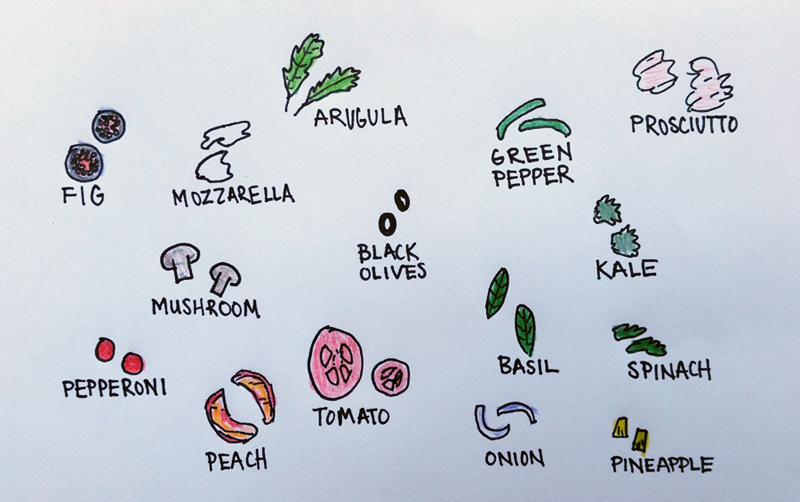 ARUGULA
PROSCIUTTO
GREEN
PEPPER
FIG
MOZZARELLA
BLACK
OLIVES
KALE
MUSHROOM
BASIL
SPINACH
PEPPERONI
TOMATO
PEACH
ONION
PINEAPPLE